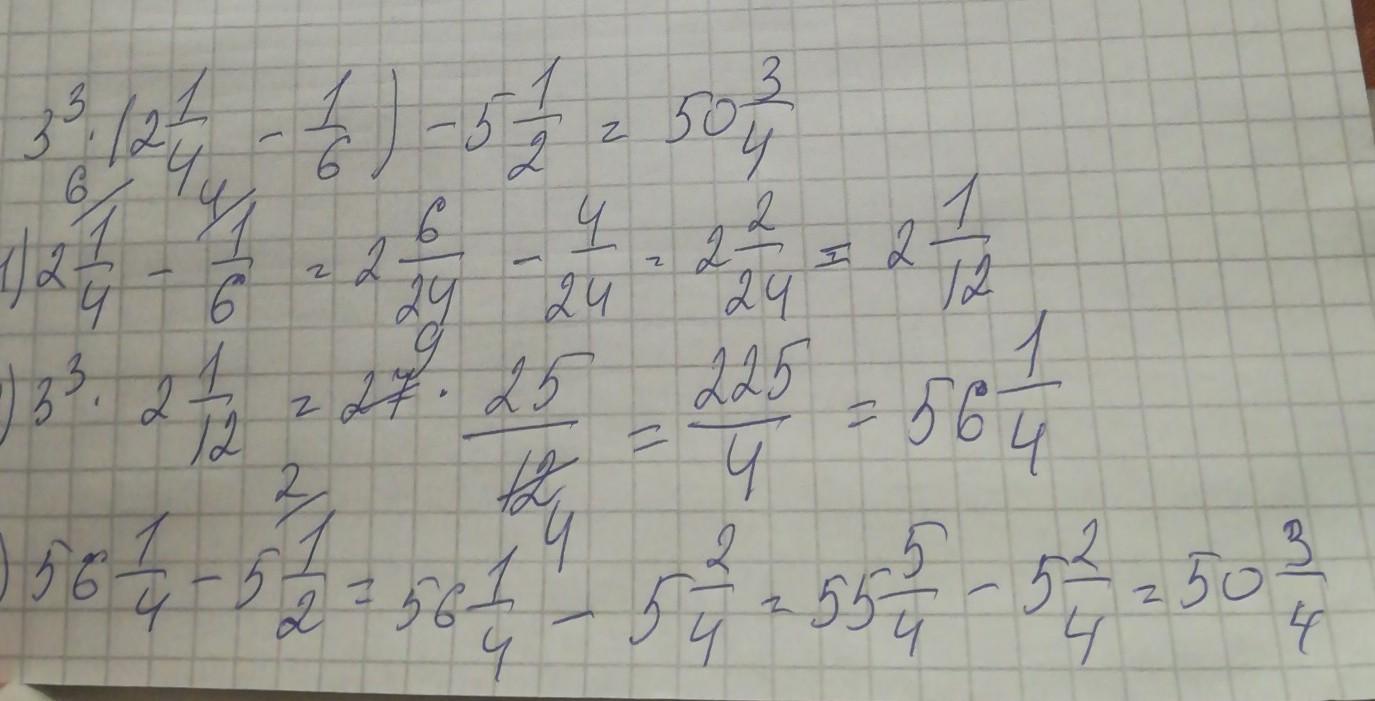 3³ · (2 1/4 - 1/6) - 5 1/2 = 50 3/4
1) 2 1/4 6/ - 1/6 4/ = 2 6/24 - 4/24 = 2 2/24 = 2 1/12
) 3³ · 2 1/12 = 27 9 · 25/12 4 = 225/4 = 56 1/4
) 56 1/4 - 5 1/2 2/ = 56 1/4 - 5 2/4 = 55 5/4 - 5 2/4 = 50 3/4